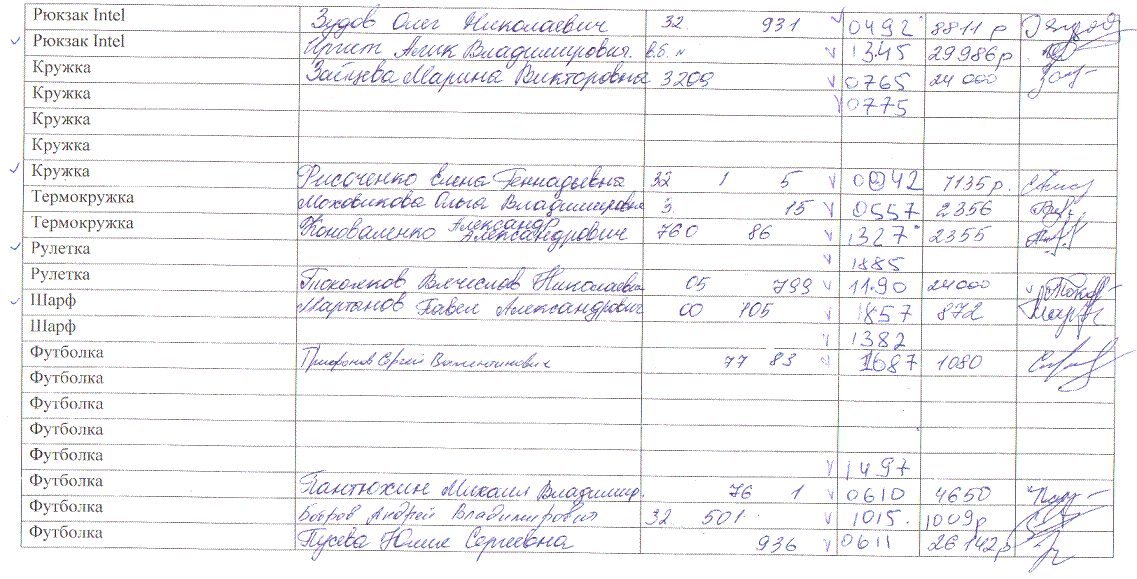 Рюкзак Intel Зудов Олег Николаевич 32 931 v 0492 8811 р
Рюкзак Intel Иргит Алик Владимирович v 1345 29986р
Кружка Зайцева Марина Викторовна 3209 v 0765 24 000
Кружка v 0775
Кружка
Кружка
Кружка Рисоченко Елена Геннадьевна 32 1 5 v 0042 7135р.
Термокружка Моховикова Ольга Владимировна 15 v 0557 2356
Термокружка Коноваленко Александр Александрович 760 86 v 1327 2355
Рулетка v 1885
Рулетка Вячеслав Николаевич 05 799 v 1190 24000
Шарф Мартынов Павел Александрович 00 105 v 1857 872
Шарф v 1382
Футболка Сергей Валентинович 77 83 v 1687 1080
Футболка
Футболка
Футболка
Футболка v 1497
Футболка Пантюхин Михаил Владимир. 76 1 v 0610 4650
Футболка Бобров Андрей Владимирович 32 501 v 1015. 1009р
Футболка Юлия Сергеевна 936 v 0611 26142р